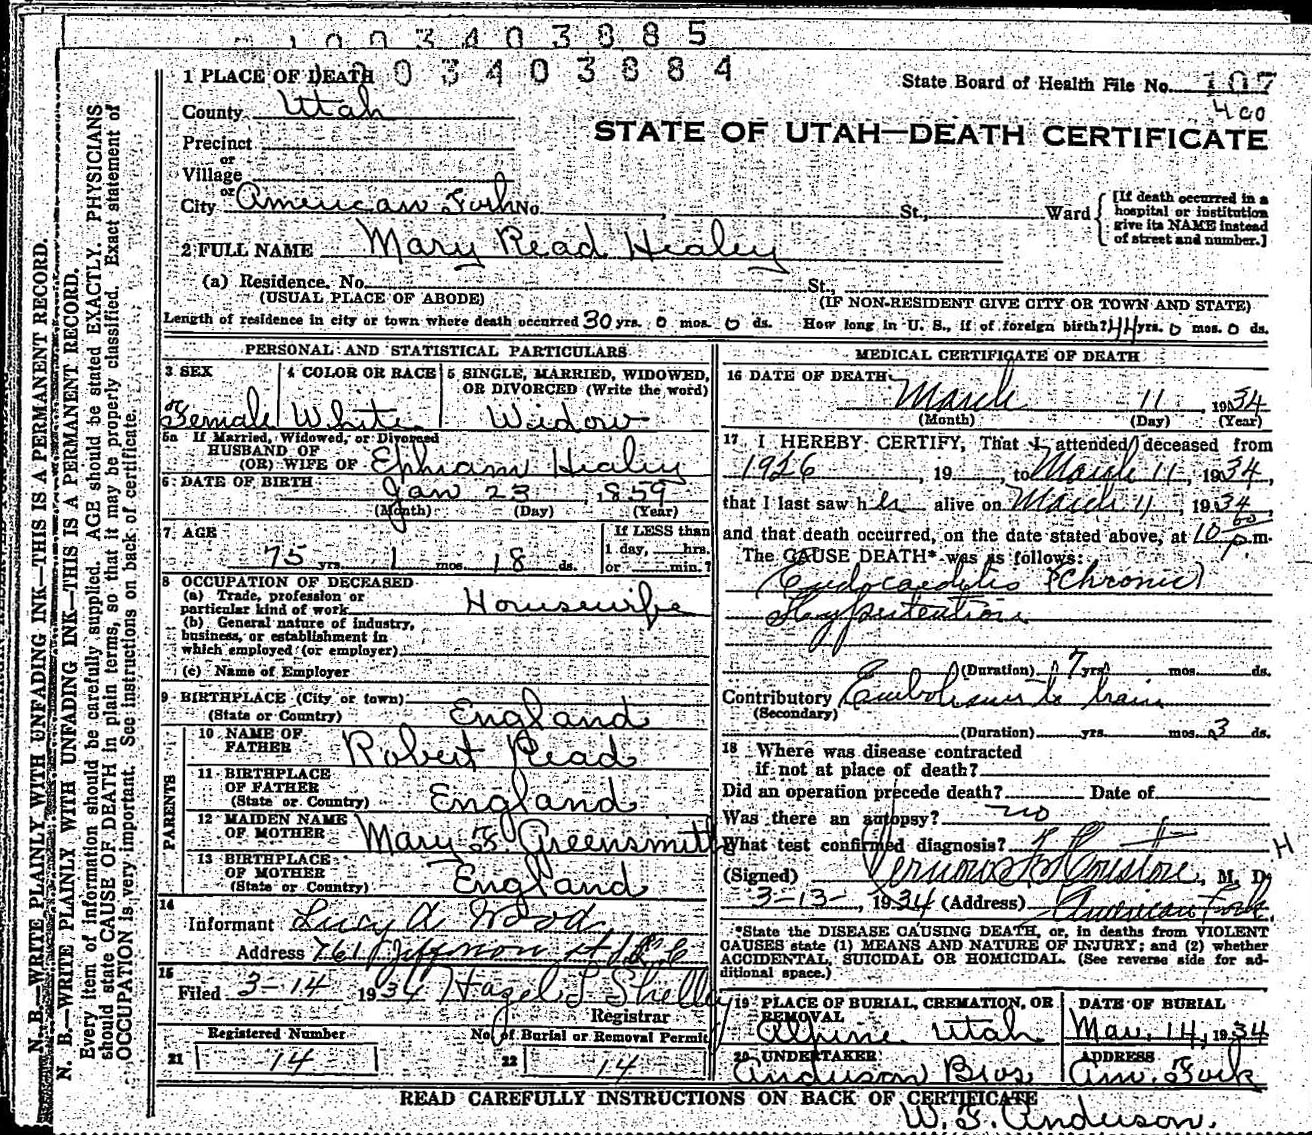 1 0 0 3 4 0 3 8 8 5
0 3 4 0 3 8 8 4
1 PLACE OF DEATH
State Board of Health File No. 107
County Utah
400
STATE OF UTAH—DEATH CERTIFICATE
Precinct
or
Village
or
City American Fork No. , St., Ward
[If death occurred in a hospital or institution give its NAME instead of street and number.]
2 FULL NAME Mary Read Healey
(a) Residence. No. St.,
(USUAL PLACE OF ABODE) (IF NON-RESIDENT GIVE CITY OR TOWN AND STATE)
Length of residence in city or town where death occurred 30 yrs. 0 mos. 0 ds. How long in U. S., if of foreign birth? 44 yrs. 0 mos. 0 ds.
PERSONAL AND STATISTICAL PARTICULARS
3 SEX 4 COLOR OR RACE 5 SINGLE, MARRIED, WIDOWED,
OR DIVORCED (Write the word)
Female White Widow
5a If Married, Widowed, or Divorced
HUSBAND OF
(OR) WIFE OF Ephiam Healey
6 DATE OF BIRTH Jan 23, 1859
(Month) (Day) (Year)
7 AGE If LESS than
75 yrs. 1 mos. 18 ds. 1 day, hrs.
or min.?
8 OCCUPATION OF DECEASED
(a) Trade, profession or
particular kind of work Housewife
(b) General nature of industry,
business, or establishment in
which employed (or employer)
(c) Name of Employer
9 BIRTHPLACE (City or town)
(State or Country) England
PARENTS
10 NAME OF
FATHER Robert Read
11 BIRTHPLACE
OF FATHER
(State or Country) England
12 MAIDEN NAME
OF MOTHER Mary F. Greensmith
13 BIRTHPLACE
OF MOTHER
(State or Country) England
14
Informant Lucy A Wood
Address 761 Jefferson St
15
Filed 3-14 1934 Hazel L Shelley
Registrar
Registered Number No. of Burial or Removal Permit
21 14 22 14
MEDICAL CERTIFICATE OF DEATH
16 DATE OF DEATH
March 11, 1934
(Month) (Day) (Year)
17 I HEREBY CERTIFY, That I attended deceased from
1926, 19 , to March 11, 1934,
that I last saw her alive on March 11, 1934,
and that death occurred, on the date stated above, at 10 00 p.m.
The CAUSE DEATH* was as follows:
Endocarditis (Chronic)
Hypertention
(Duration) 7 yrs. mos. ds.
Contributory Embolism to brain
(Secondary)
(Duration) yrs. mos. 3 ds.
18 Where was disease contracted
if not at place of death?
Did an operation precede death? Date of
Was there an autopsy? no
What test confirmed diagnosis?
H
(Signed) Vernon F Houston, M. D.
3-13-, 1934 (Address) American Fork
*State the DISEASE CAUSING DEATH, or, in deaths from VIOLENT
CAUSES state (1) MEANS AND NATURE OF INJURY; and (2) whether
ACCIDENTAL, SUICIDAL OR HOMICIDAL. (See reverse side for ad-
ditional space.)
19 PLACE OF BURIAL, CREMATION, OR DATE OF BURIAL
REMOVAL
Alpine Utah Mar. 14, 1934
20 UNDERTAKER ADDRESS
Anderson Bros. Am. Fork
READ CAREFULLY INSTRUCTIONS ON BACK OF CERTIFICATE
W. F. Anderson.
N. B.—WRITE PLAINLY WITH UNFADING INK—THIS IS A PERMANENT RECORD.
N. B.—WRITE PLAINLY WITH UNFADING INK—THIS IS A PERMANENT RECORD.
Every item of information should be carefully supplied. AGE should be stated EXACTLY. PHYSICIANS
should state CAUSE OF DEATH in plain terms, so that it may be properly classified. Exact statement of
OCCUPATION is very important. See instructions on back of certificate.